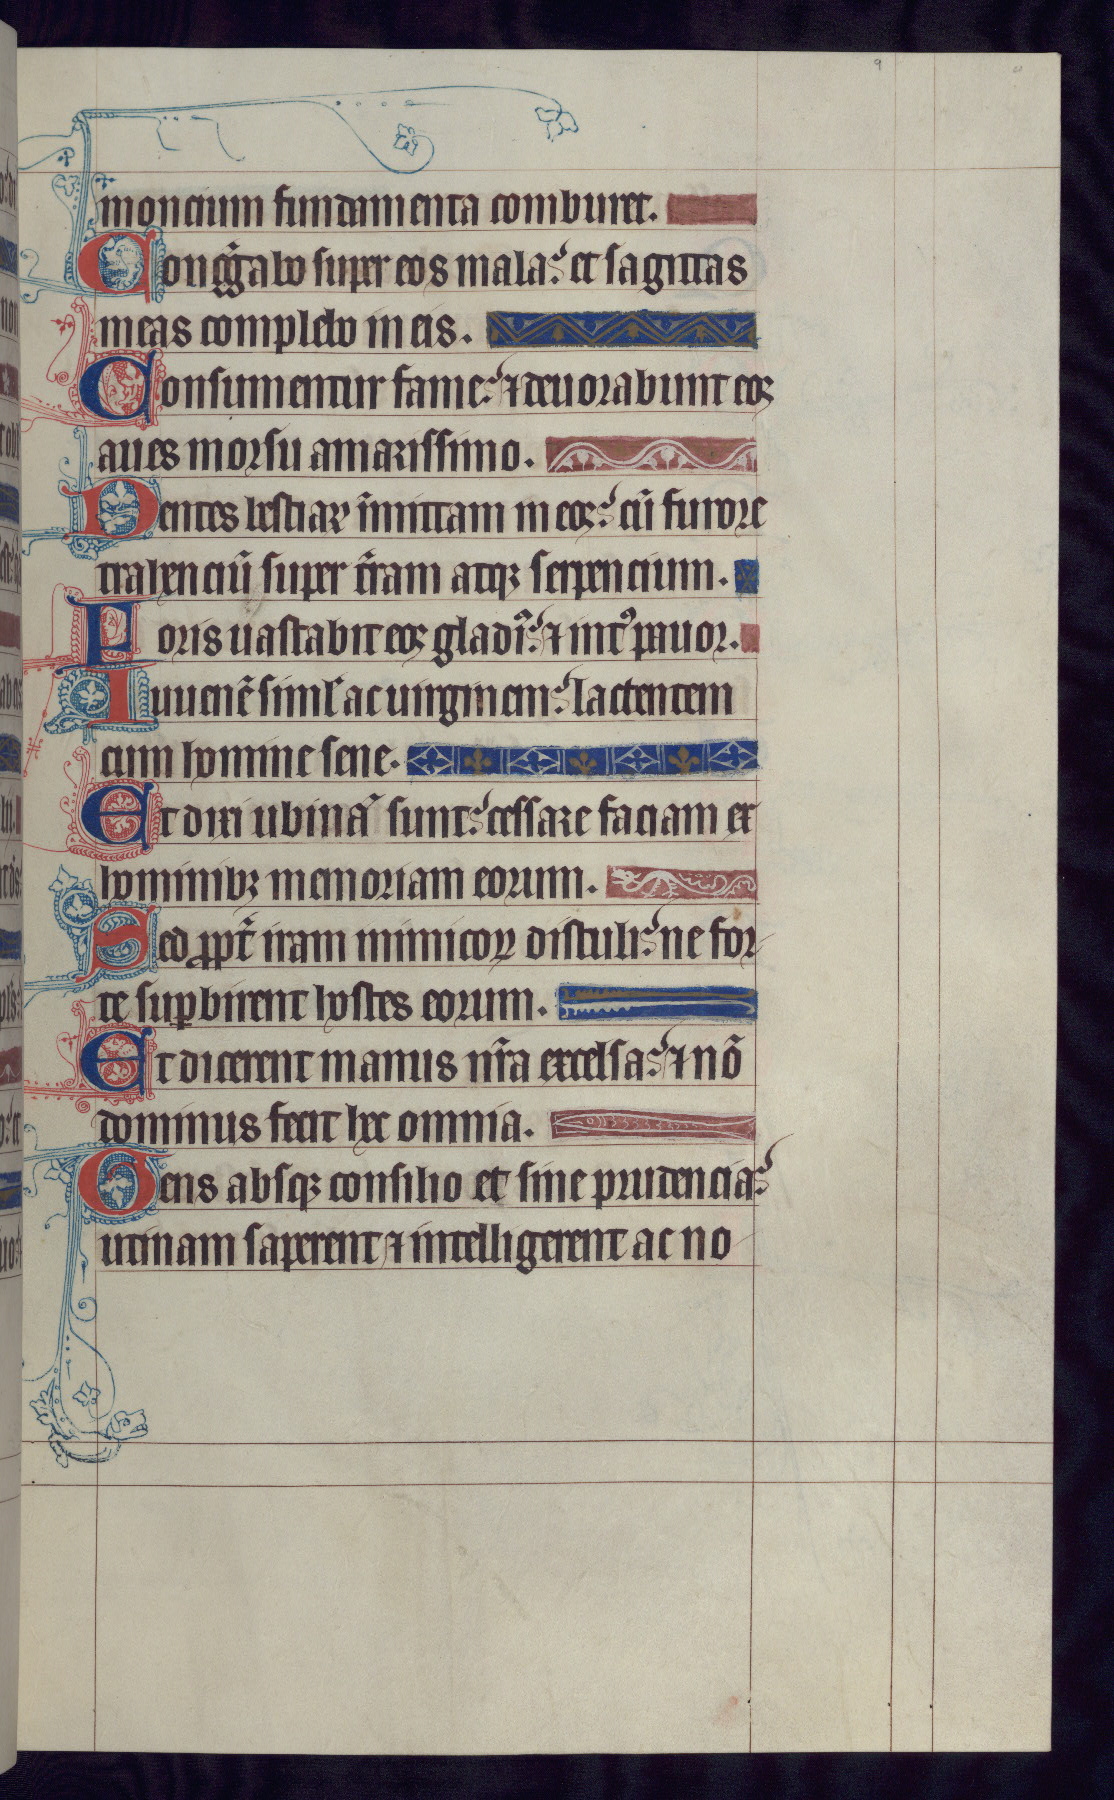 moncium fundamenta comburet.
Congͣgabo super eos mala: et sagittas
meas complebo in eis.
Consumentur fame: ⁊ deuorabunt eoꝫ
aues morsu amarissimo.
Dentes bestiaꝝ īmittam in eos: cū furore
trahenciū super t̄ram atqꝫ serpencium.
Foris uastabit eos gladi᷒: ⁊ int᷒ pauor.
Iuuenē simł ac uirginem: lactentem
cum homine sene.
Et dixi ubinaͣ sunt: cessare faciam ex
hominibꝫ memoriam eorum.
Sed ꝓpt̄ iram inimicoꝝ distuli: ne for-
te suꝑbirent hostes eorum.
Et dicerent manus nr̄a excelsa: ⁊ nō
dominus fecit hec omnia.
Gens absqꝫ consilio et sine prudencia:
utinam saperent ⁊ intelligerent ac no